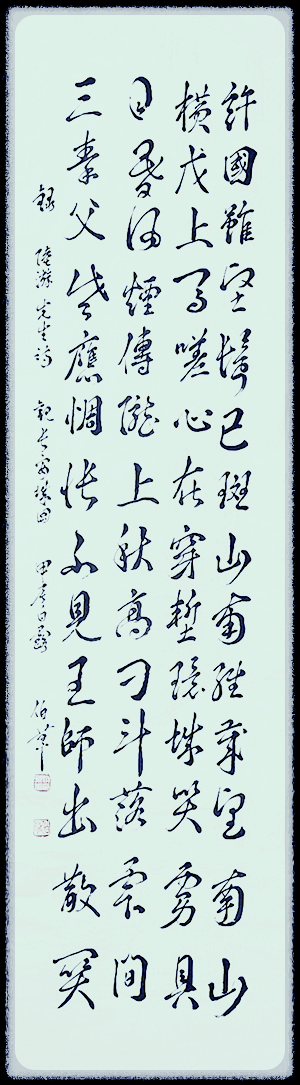 許國雖堅鬢已斑山南經歲望南山
橫戈上馬嗟心在穿塹環城笑虜孱
日暮風煙傳隴上秋高刁斗落雲間
三秦父老應惆悵不見王師出散關
錄 陸游先生詩 觀長安城圖